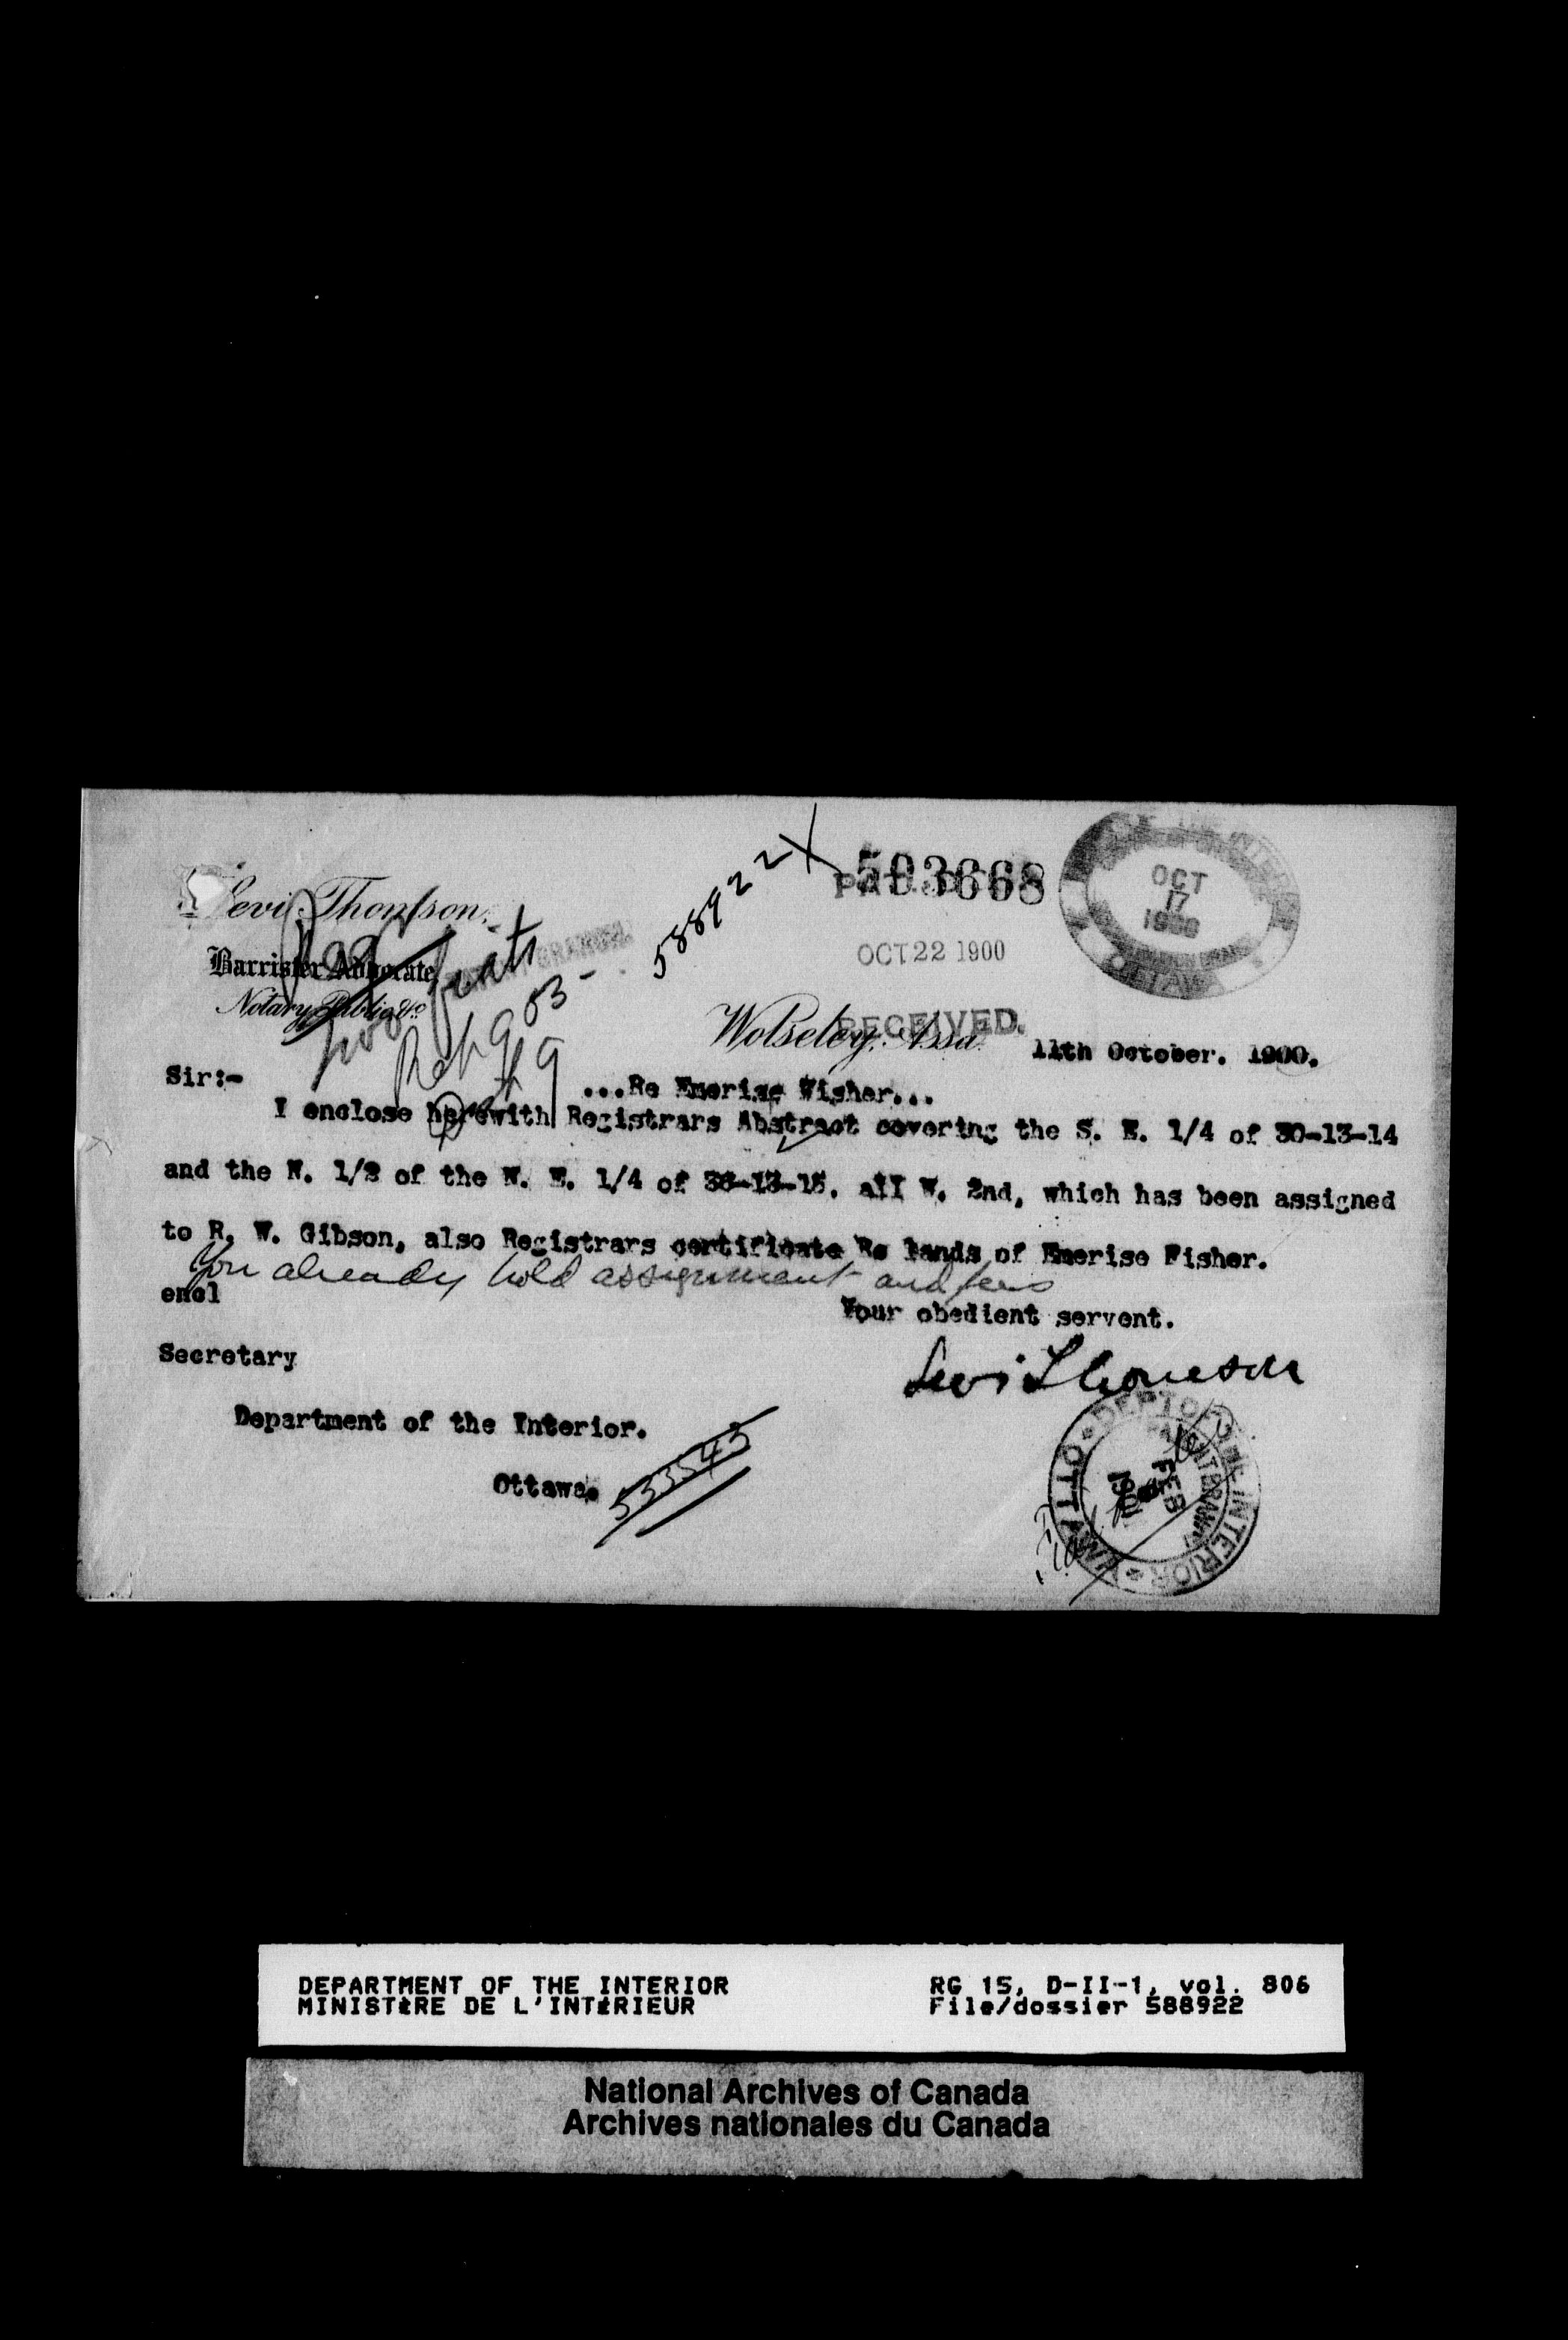 Levi Thomson,
Barrister Advocate,
Notary Public &c.
588922
593668
OCT 22 1900
RECEIVED.
OCT
17
1900
OTTAWA
Wolseley, Assa. 11th October. 1900.
Sir:-
...Re Emerise Fisher...
I enclose herewith Registrars Abstract covering the S. E. 1/4 of 30-13-14
and the N. 1/2 of the N. E. 1/4 of 36-13-15. all W. 2nd, which has been assigned
to R. W. Gibson, also Registrars certificate Re lands of Emerise Fisher.
You already hold assignment and fees
encl
Your obedient servent.
Secretary
Levi Thomson
Department of the Interior.
Ottawa.
533545
DEPT OF THE INTERIOR
FEB
1901
OTTAWA
DEPARTMENT OF THE INTERIOR RG 15, D-II-1, vol. 806
MINISTÈRE DE L'INTÉRIEUR File/dossier 588922
National Archives of Canada
Archives nationales du Canada